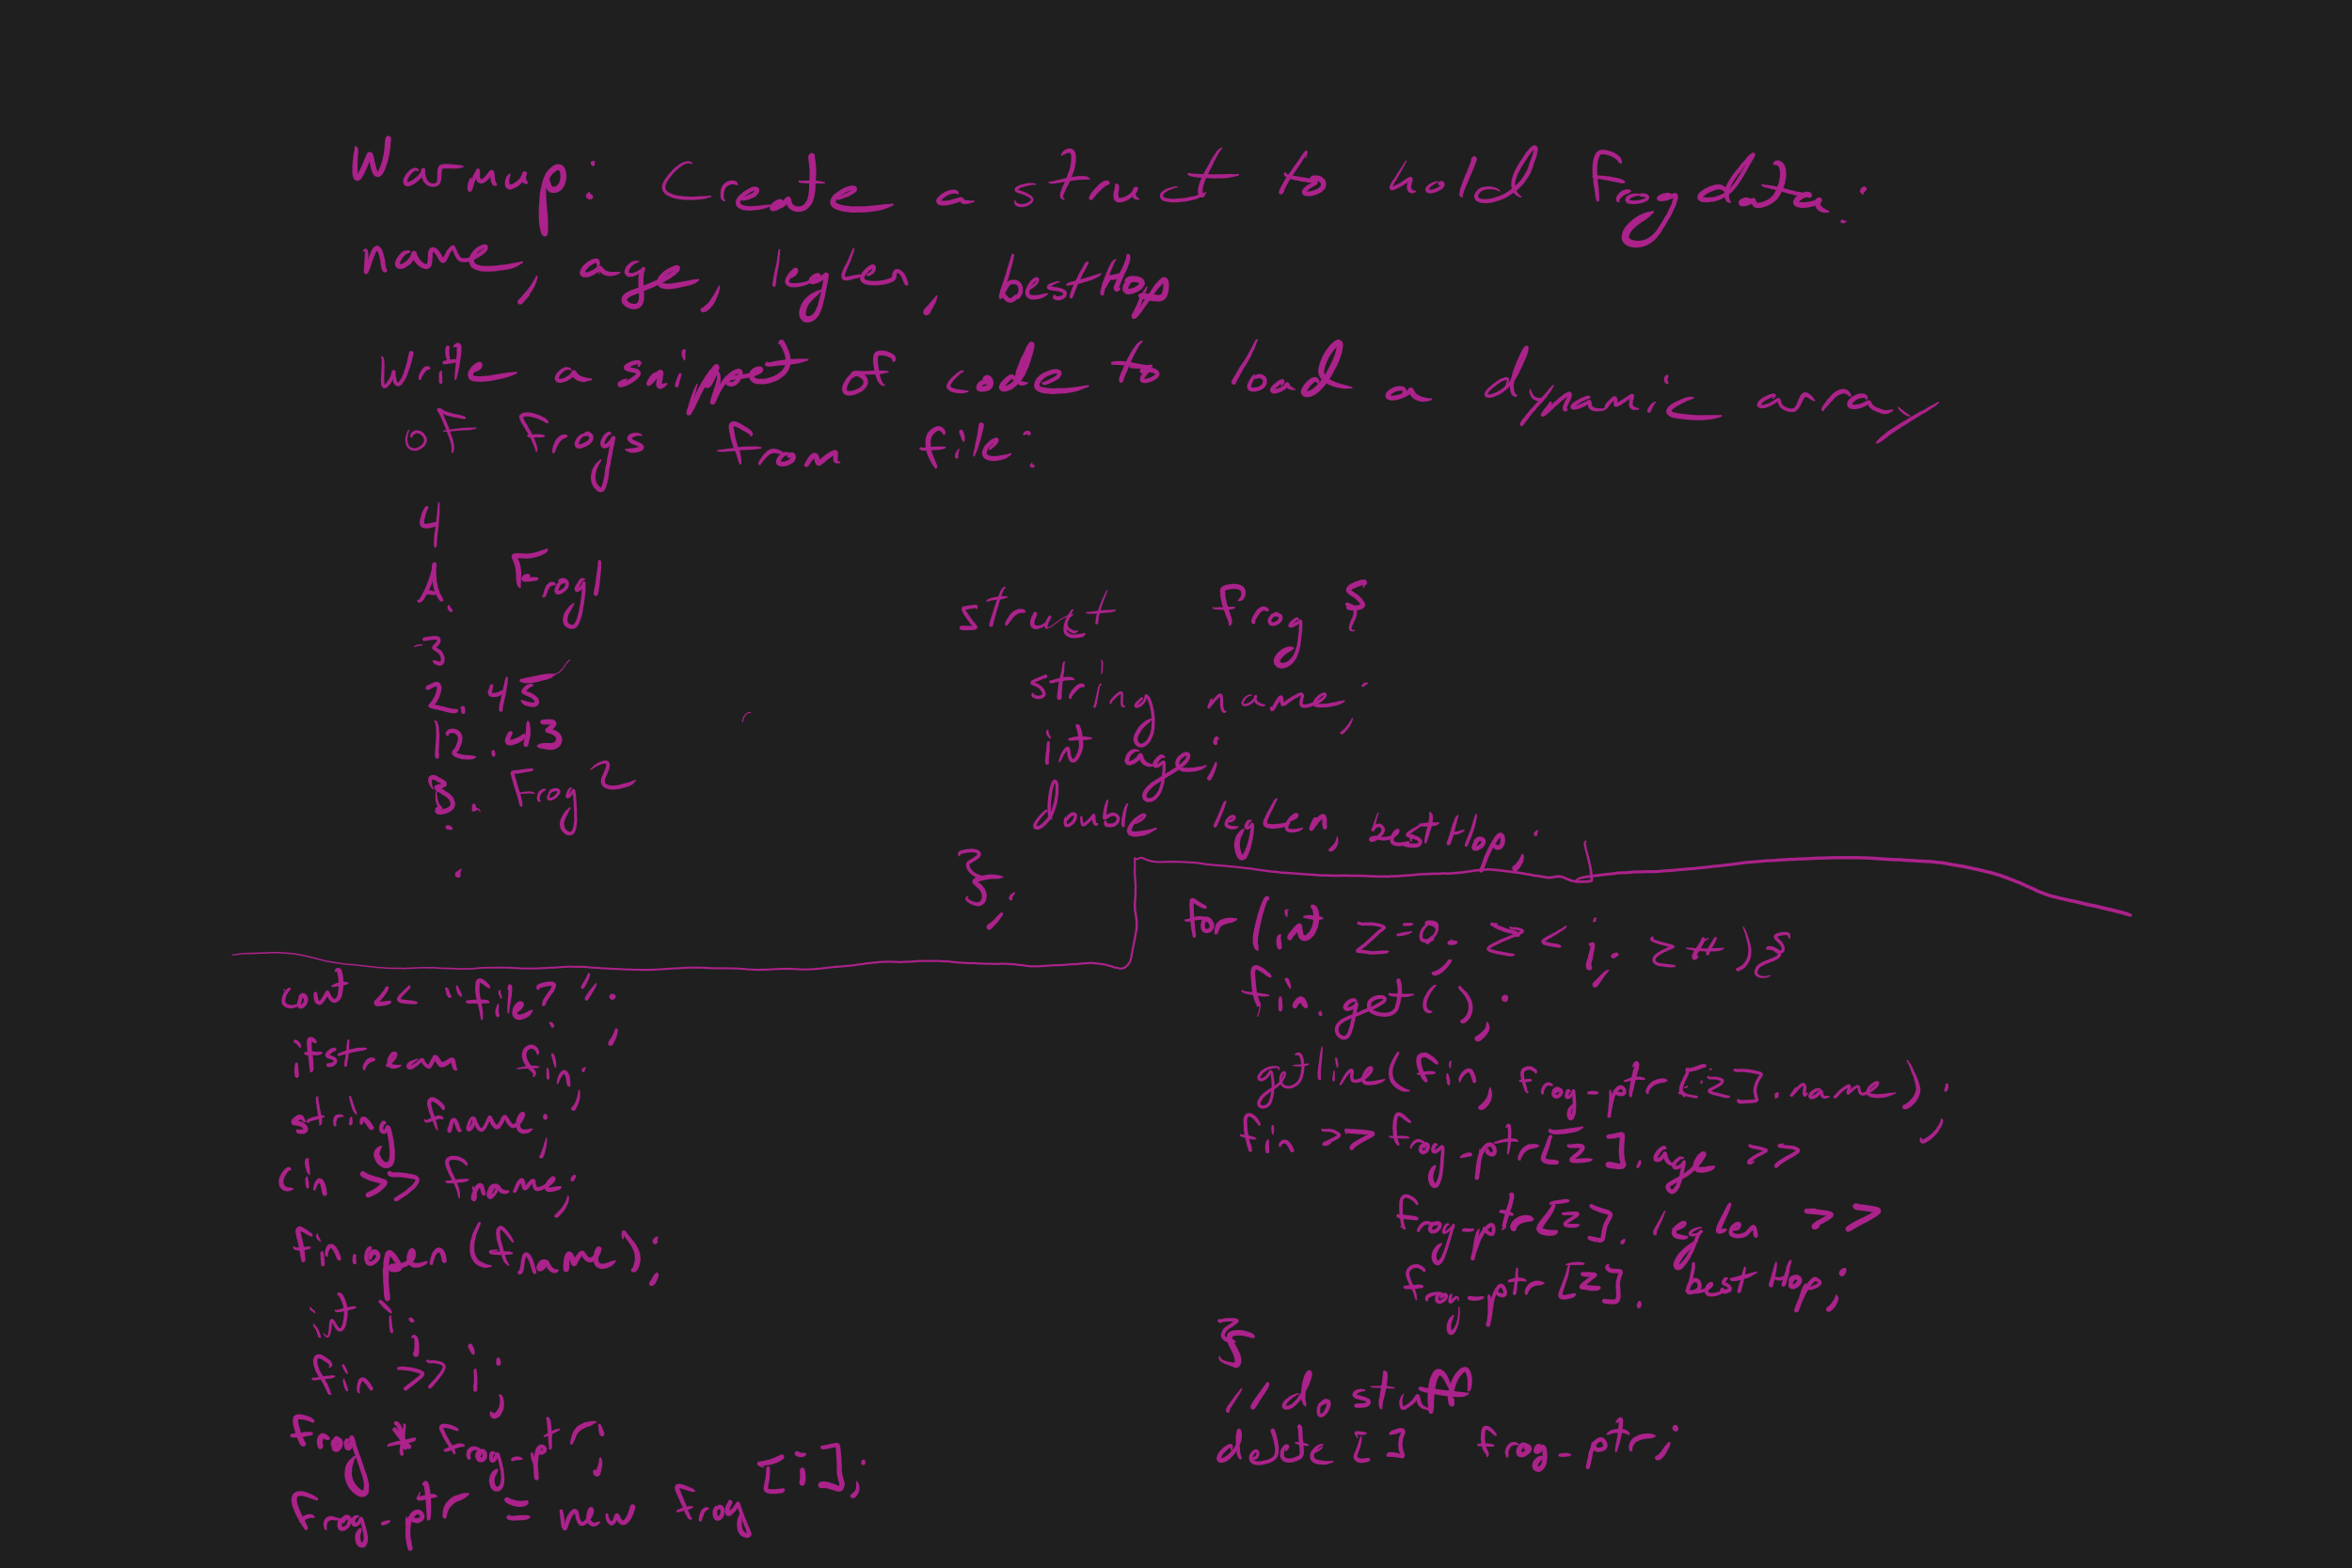 Warmup: Create a struct to hold frog data:
name, age, leglen, besthop
Write a snippet of code to load a dynamic array
of frogs from file:
4
A. Frog1
3
2.45
12.43
B. Frog2
.
.
struct frog {
string name;
int age;
double leglen, besthop;
};
cout << "file?";
ifstream fin;
string fname;
cin >> fname;
fin.open(fname);
int i;
fin >> i;
frog* frog_ptr;
frog_ptr = new frog[i];
for(int z=0; z<i; z++){
fin.get();
getline(fin, frog_ptr[z].name);
fin >> frog_ptr[z].age >>
frog_ptr[z].leglen >>
frog_ptr[z].besthop;
}
// do stuff
delete [] frog_ptr;